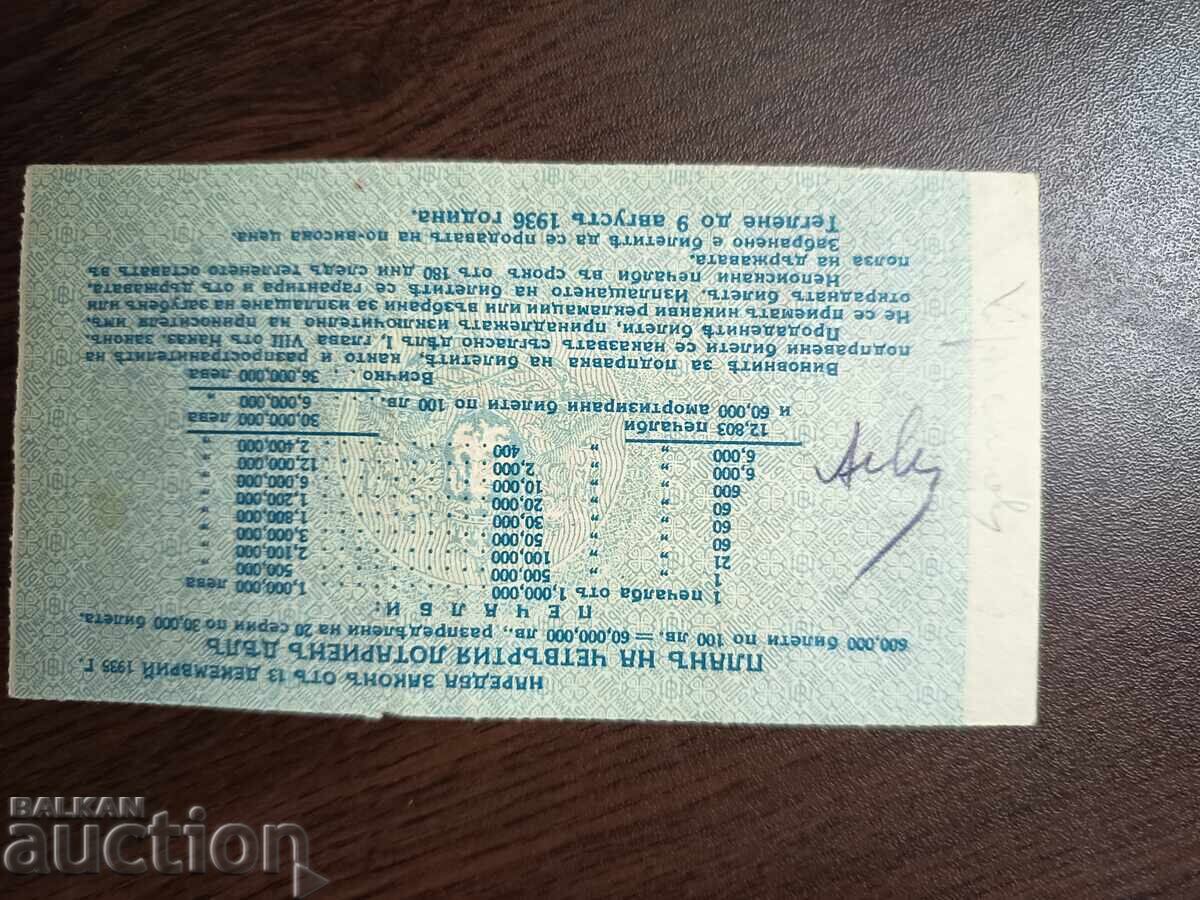 НАРЕДБА ЗАКОНЪ ОТЪ 13 ДЕКЕМВРИЙ 1935 Г.
ПЛАНЪ НА ЧЕТВЪРТИЯ ЛОТАРИЕНЪ ДѢЛЪ
600,000 билети по 100 лв. = 60,000,000 лв., разпредѣлени на 20 серии по 30,000 билета.
ПЕЧАЛБИ:
1 печалба отъ 1,000,000 . . . . . . . 1,000,000 лева
1 „ „ 500,000 . . . . . . . 500,000 „
21 „ „ 100,000 . . . . . . . 2,100,000 „
60 „ „ 50,000 . . . . . . . 3,000,000 „
60 „ „ 30,000 . . . . . . . 1,800,000 „
60 „ „ 20,000 . . . . . . . 1,200,000 „
600 „ „ 10,000 . . . . . . . 6,000,000 „
6,000 „ „ 2,000 . . . . . . . 12,000,000 „
6,000 „ „ 400 . . . . . . . 2,400,000 „
12,803 печалби 30,000,000 лева
и 60,000 амортизирани билети по 100 лв. . . . . 6,000,000 „
Всичко . . . 36,000,000 лева
Виновнитѣ за подправка на билетитѣ, както и разпространителитѣ на
подправени билети се наказватъ съгласно дѣлъ I, глава VIII отъ Наказ. законъ.
Продаденитѣ билети, принадлежатъ изключително на приносителя имъ.
Не се приематъ никакви рекламации или възбрани за изплащане на загубенъ или
откраднатъ билетъ. Изплащането на билетитѣ се гарантира и отъ държавата.
Непоискани печалби въ срокъ отъ 180 дни следъ тегленето оставатъ въ
полза на държавата.
Забранено е билетитѣ да се продаватъ на по-висока цена.
Теглене до 9 августъ 1936 година.
BALKAN
auction